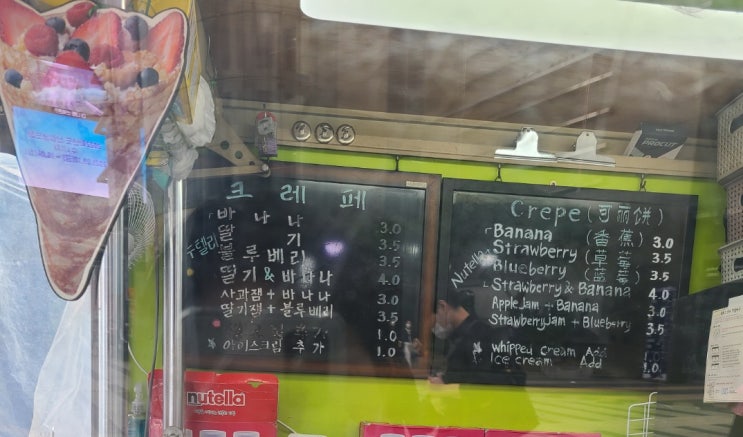 크레페
누텔라
바나나 3.0
딸기 3.5
블루베리 3.5
딸기&바나나 4.0
사과잼+바나나 3.0
딸기잼+블루베리 3.5
1.0
아이스크림 추가 1.0
Crepe (可丽饼)
Nutella
Banana (香蕉) 3.0
Strawberry (草莓) 3.5
Blueberry (蓝莓) 3.5
Strawberry & Banana 4.0
Apple Jam + Banana 3.0
Strawberry Jam + Blueberry 3.5
Whipped Cream Add 1.0
Ice cream Add 1.0
PROCUT
nutella